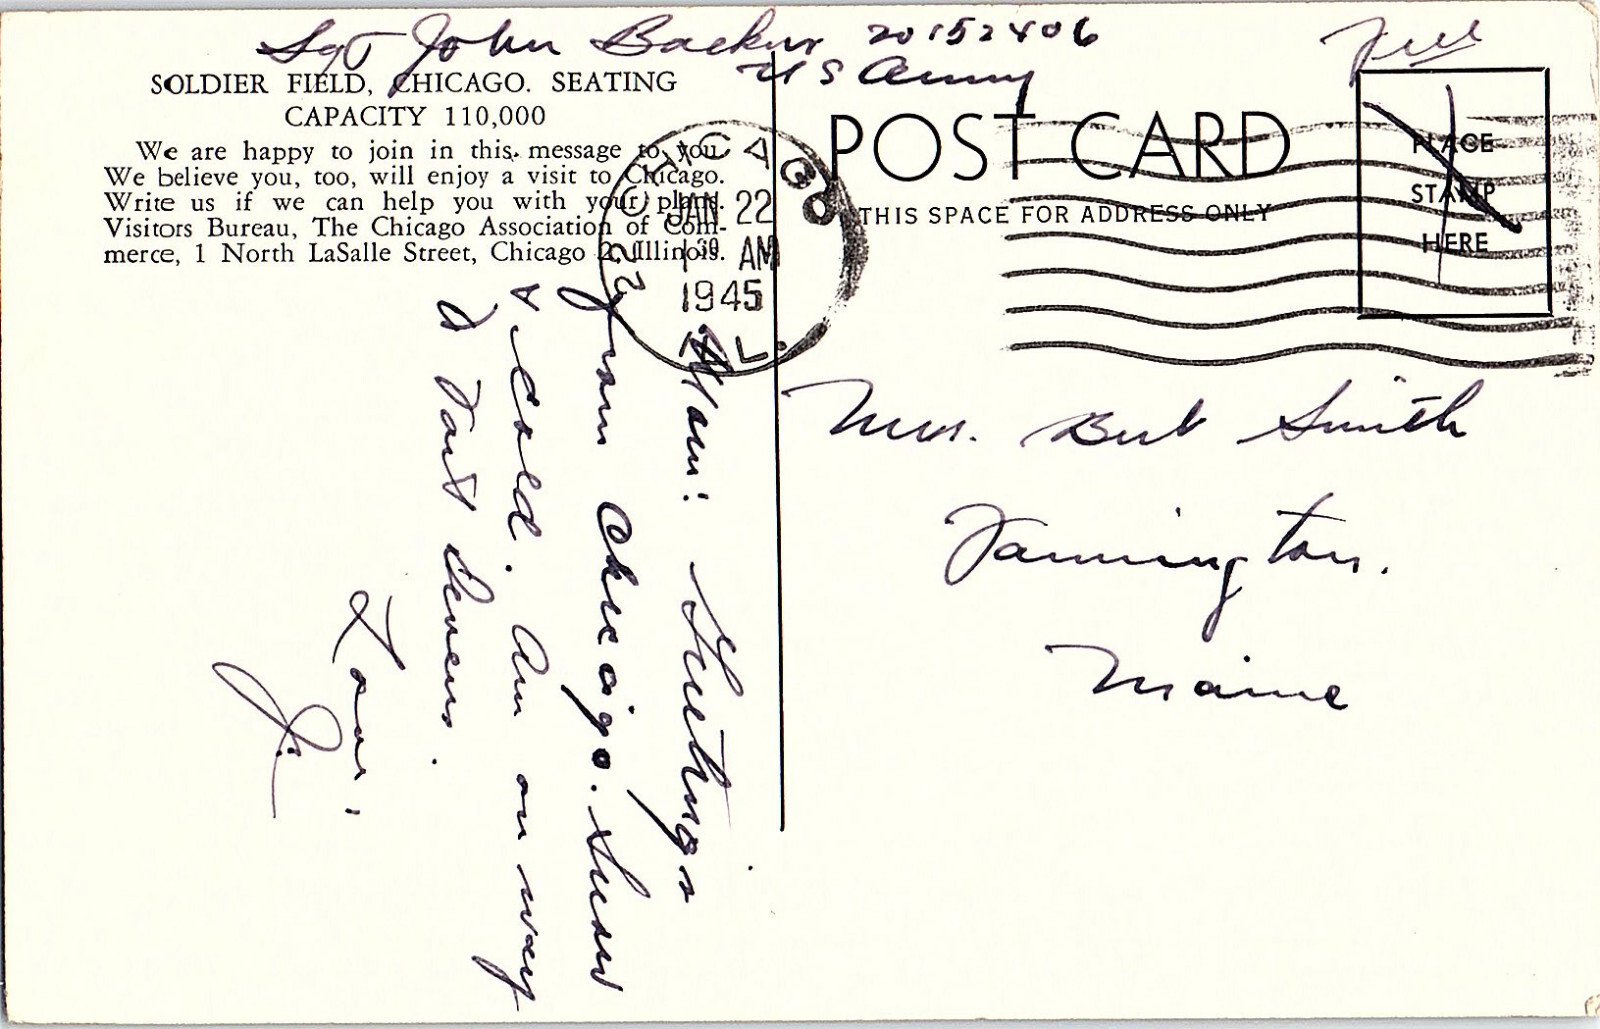 Sgt John Backus 20152406
US Army
Free
SOLDIER FIELD, CHICAGO. SEATING
CAPACITY 110,000
We are happy to join in this message to you.
We believe you, too, will enjoy a visit to Chicago.
Write us if we can help you with your plans.
Visitors Bureau, The Chicago Association of Com-
merce, 1 North LaSalle Street, Chicago 2, Illinois.
CHICAGO
JAN 22
1 30 AM
1945
ILL.
POST CARD
THIS SPACE FOR ADDRESS ONLY
PLACE
STAMP
HERE
Mom: Greetings
from Chicago.
& cold. Am on way
to Fort Devens.
Love,
J.
Mrs. Bert Smith
Farmington.
Maine